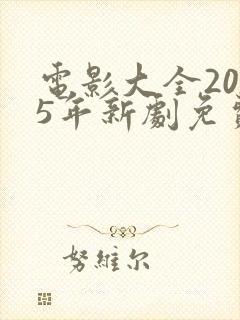 電影大全20
5年新劇免
努維尔